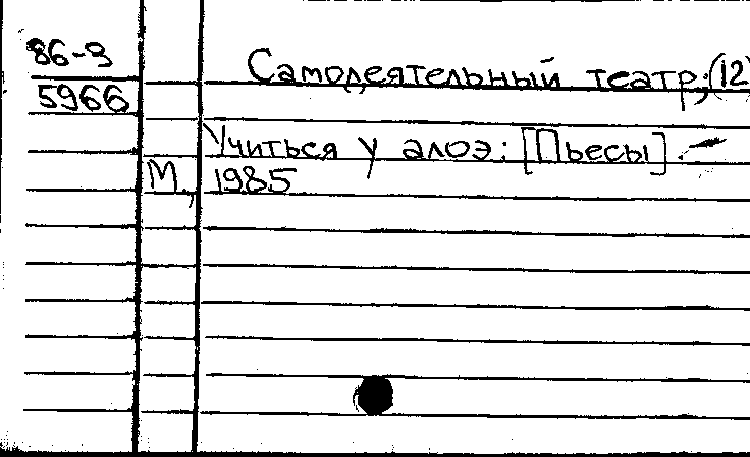 86-9
5966
Самодеятельный театр; (12)
Учиться у алоэ: [Пьесы]. —
М., 1985